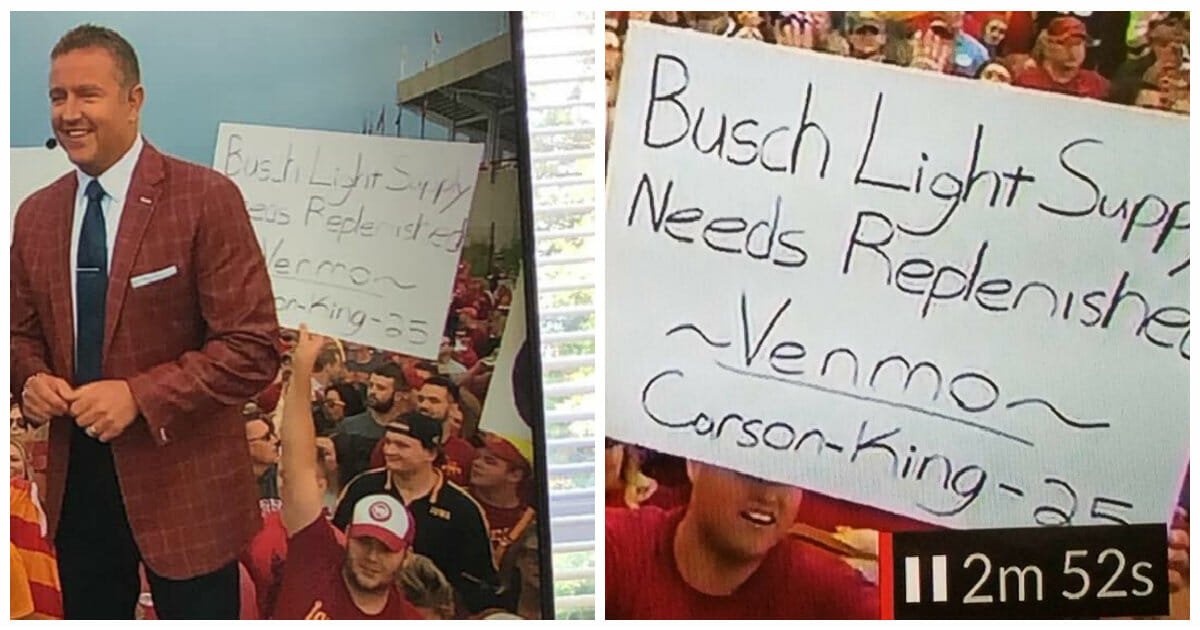 Busch Light Supply
eeds Replenished
Venmo~
on-King-25
IOWA
Busch Light Supp
Needs Replenished
~Venmo~
Carson-King-25
2m 52s